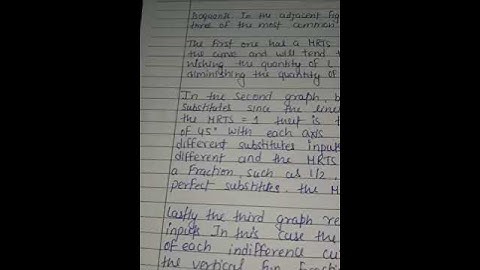 isoquants. In the adjacent fig
three of the most common
The first one has a MRTS
the curve and will tend t
nishing the quantity of L
diminishing the quantity of
In the second graph, b
substitutes since the line
the MRTS = 1 that is t
of 45° with each axis
different substitutes input
different and the MRTS
a fraction, such as 1/2,
perfect substitutes. the M
Lastly the third graph re
inputs In this case the
of each indifference cu
the vertical